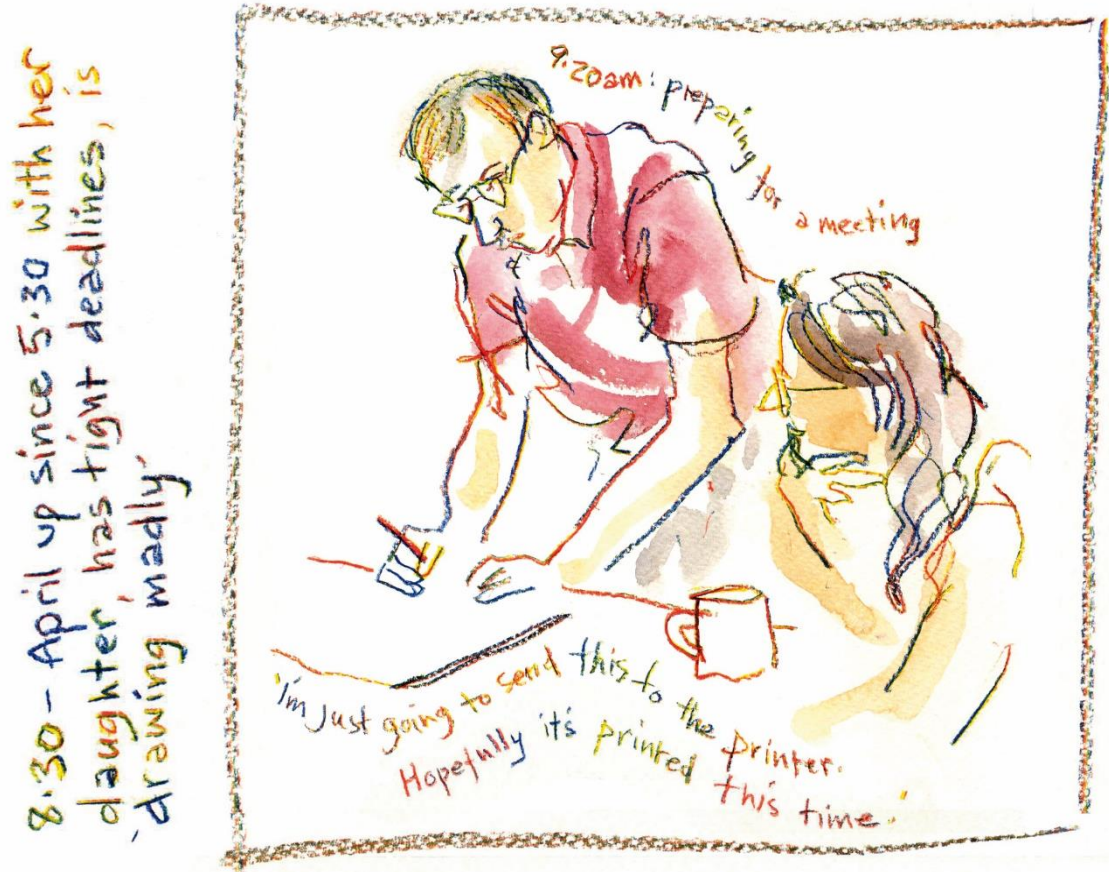 8.30 – April up since 5.30 with her
daughter, has tight deadlines, is
'drawing madly'
9.20am: preparing for a meeting
'I'm just going to send this to the printer.
Hopefully it's printed this time.'